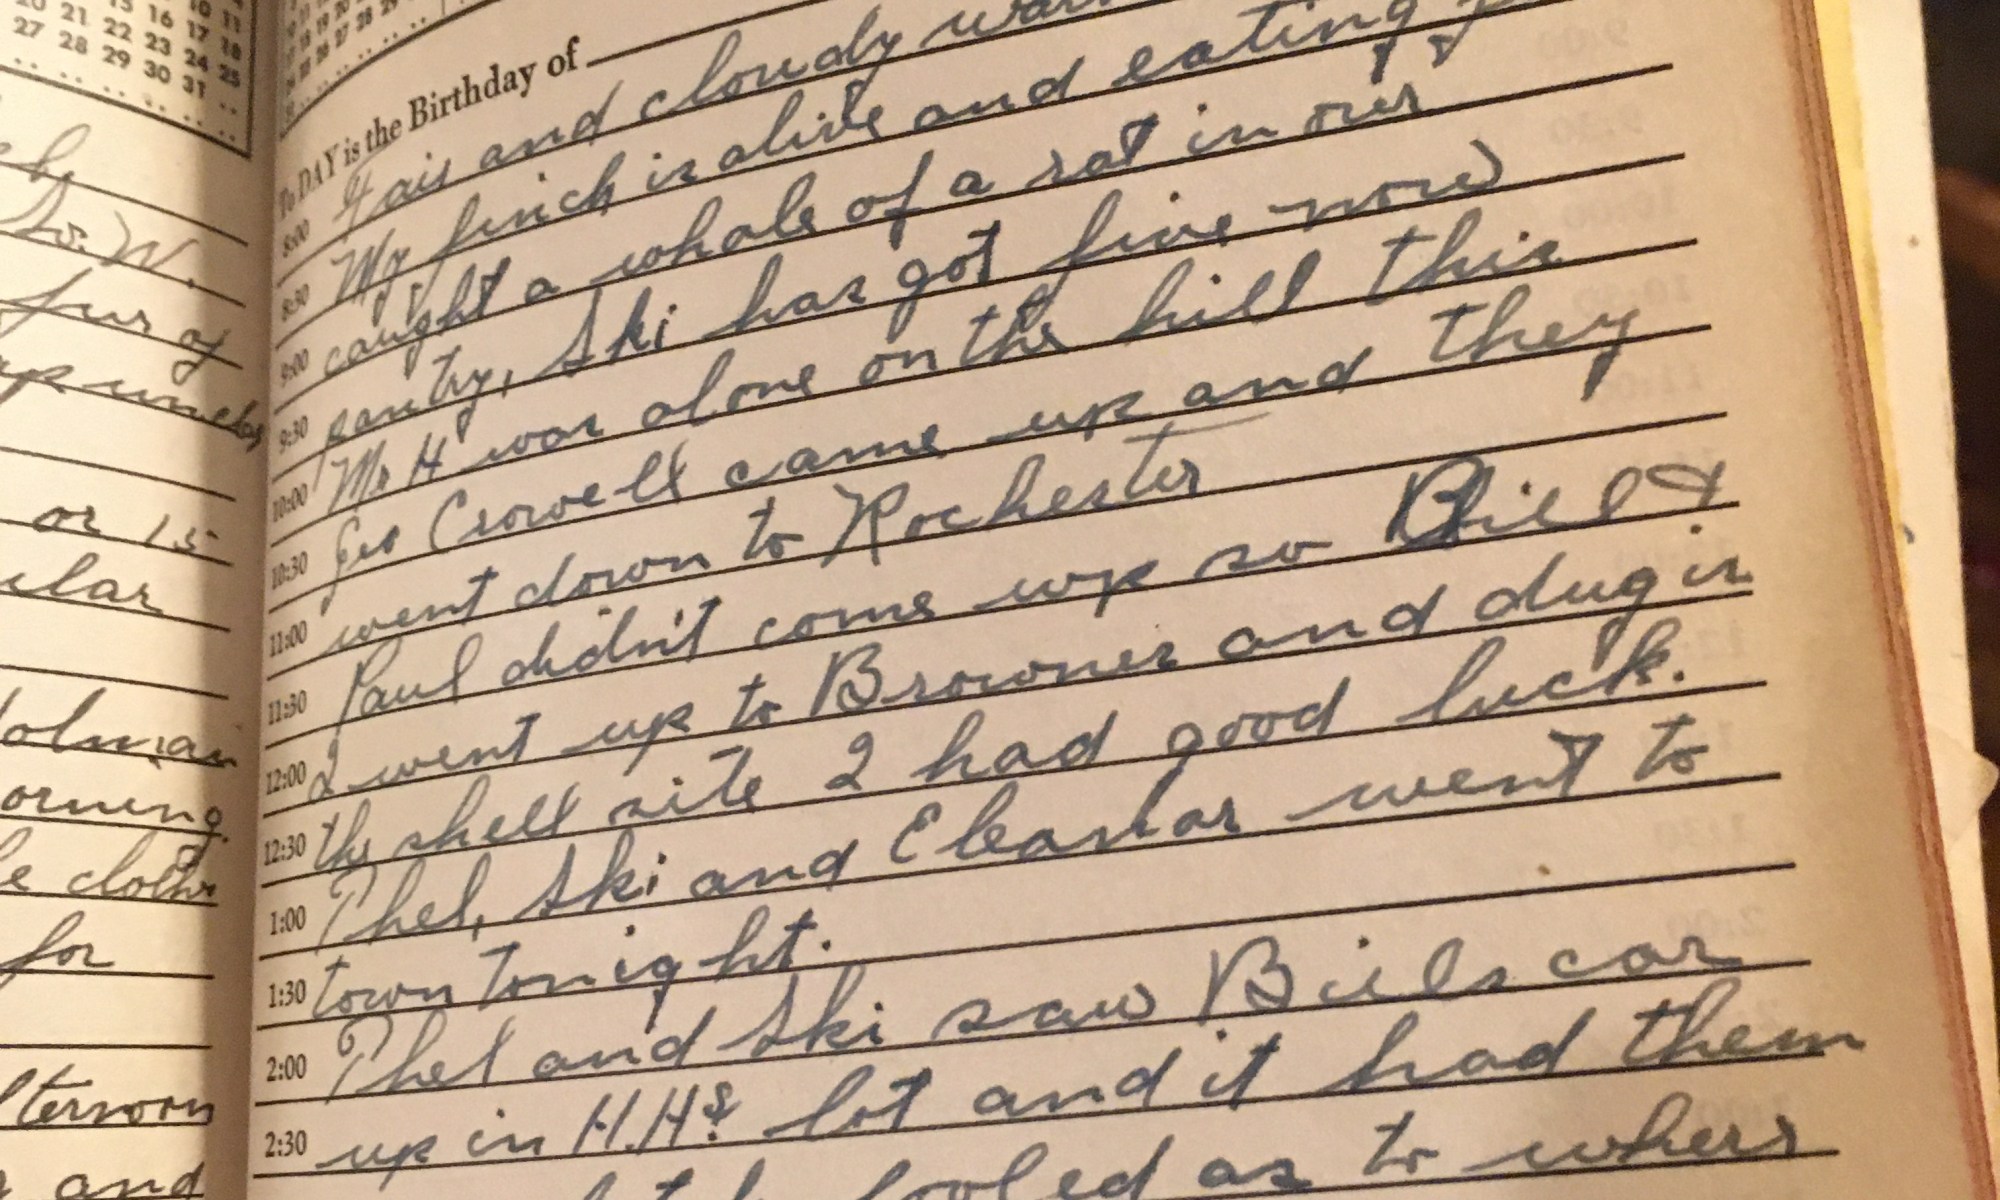 10 11
15 16 17 18
20 21 22 23 24 25
27 28 29 30 31
So. W.
fur of
or 15
ular
orning.
clothes
for
and
To DAY is the Birthday of
8:00 Fair and cloudy
8:30 My finch is alive and eating
9:00 caught a whale of a rat in our
9:30 pantry, Ski has got five now
10:00 Mr H was alone on the hill this
10:30 Geo Crowell came up and they
11:00 went down to Rochester
11:30 Paul didn't come up so Bill &
12:00 I went up to Browns and dug in
12:30 the shell site I had good luck.
1:00 Phel, Ski and Eleanor went to
1:30 town tonight.
2:00 Phel and Ski saw Bills car
2:30 up in H.H's lot and it had them
fooled as to where